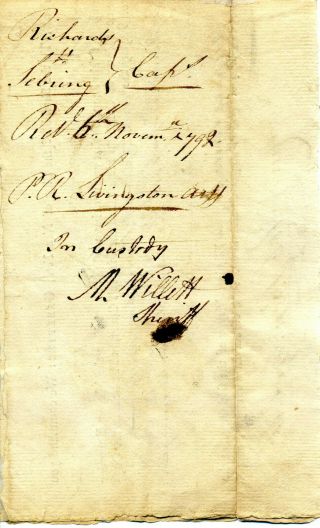 Richards
Sebring } Caps.
Ret. 6th Novem. 1792
P. R. Livingston atty
In Custody
M Willett
Sheriff